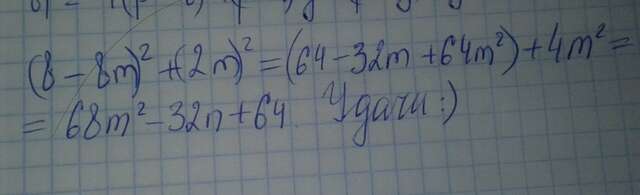 (8 - 8m)² + (2m)² = (64 - 32m + 64m²) + 4m² =
= 68m² - 32m + 64. Удачи :)